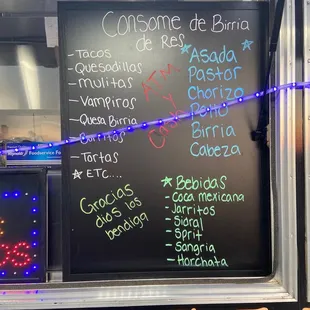 Consome de Birria
de Res
-Tacos
-Quesadillas
-mulitas
-Vampiros
-Quesa Birria
-Burritos
-Tortas
★ ETC....
ATM
y
Cash
Asada
Pastor
Chorizo
Pollo
Birria
Cabeza
Gracias
dios los
bendiga
★ Bebidas
- Coca mexicana
- Jarritos
- Sidral
- Sprit
- Sangria
- Horchata